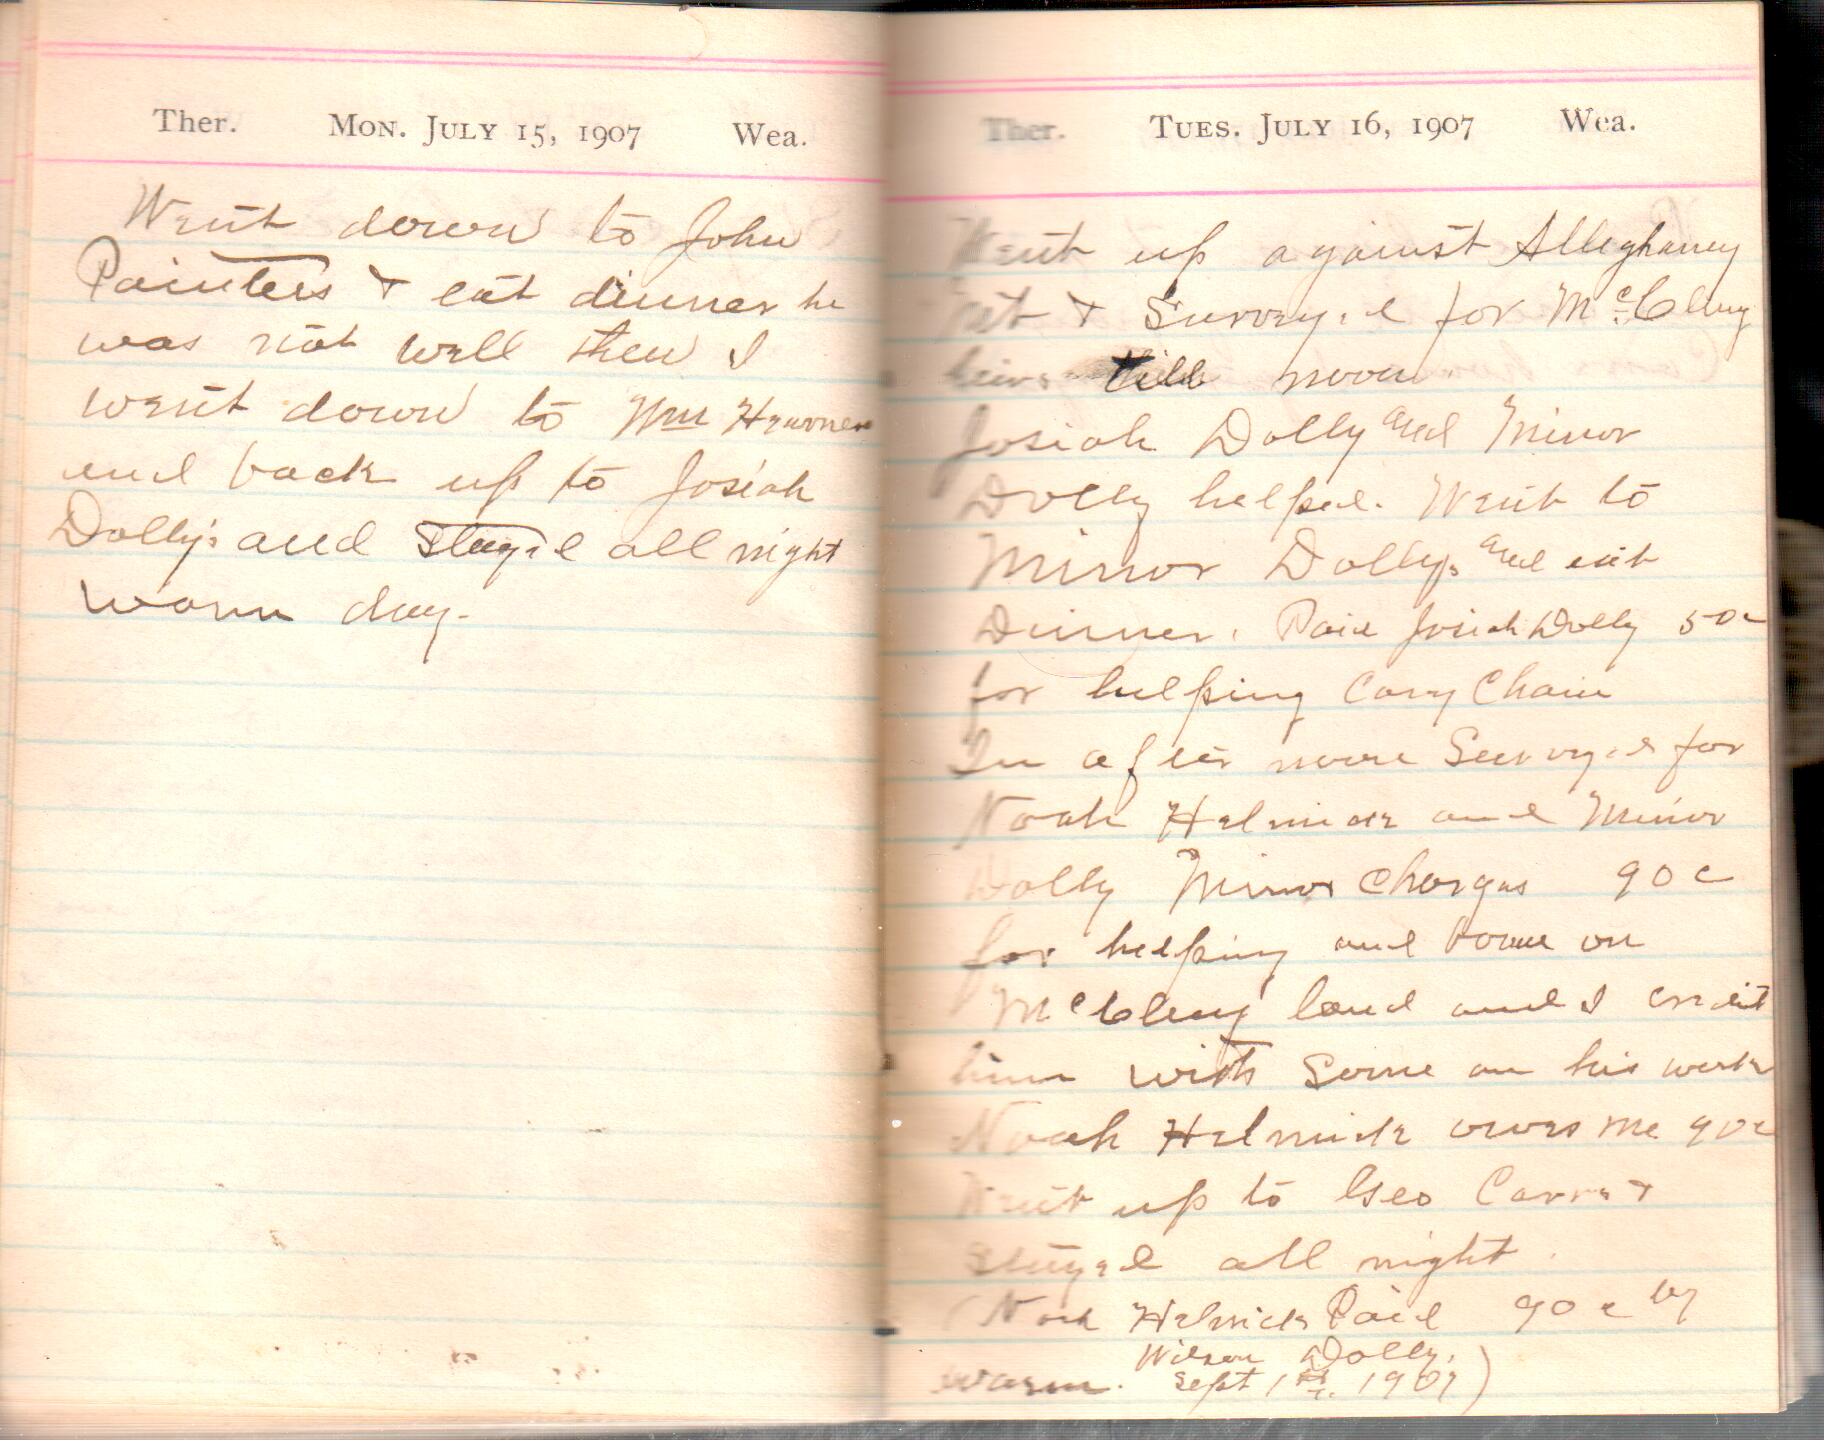 Ther. Mon. July 15, 1907 Wea.
Went down to John
Painters & eat dinner he
was not well then I
went down to Wm
and back up to Josiah
Dolly's and stayed all night
warm day.
Ther. Tues. July 16, 1907 Wea.
Went up against Alleghaney
& Surveyed for McClung
heirs till noon.
Josiah Dolly and Minor
Dolly helped. Went to
Minor Dollys and eat
Dinner. Paid Josiah Dolly 50c
for helping Cary Chain
In after noon Surveyed for
Noah Helmick and Minor
Dolly Minor Charges 90c
for helping and some on
McClung land and I credit
him with some on his work
Noah Helmick owes me 90c
Went up to Geo Carrs &
Stayed all night.
(Noah Helmick Paid 90c by
Wilson Dolly.
warm. Sept 1st, 1907)